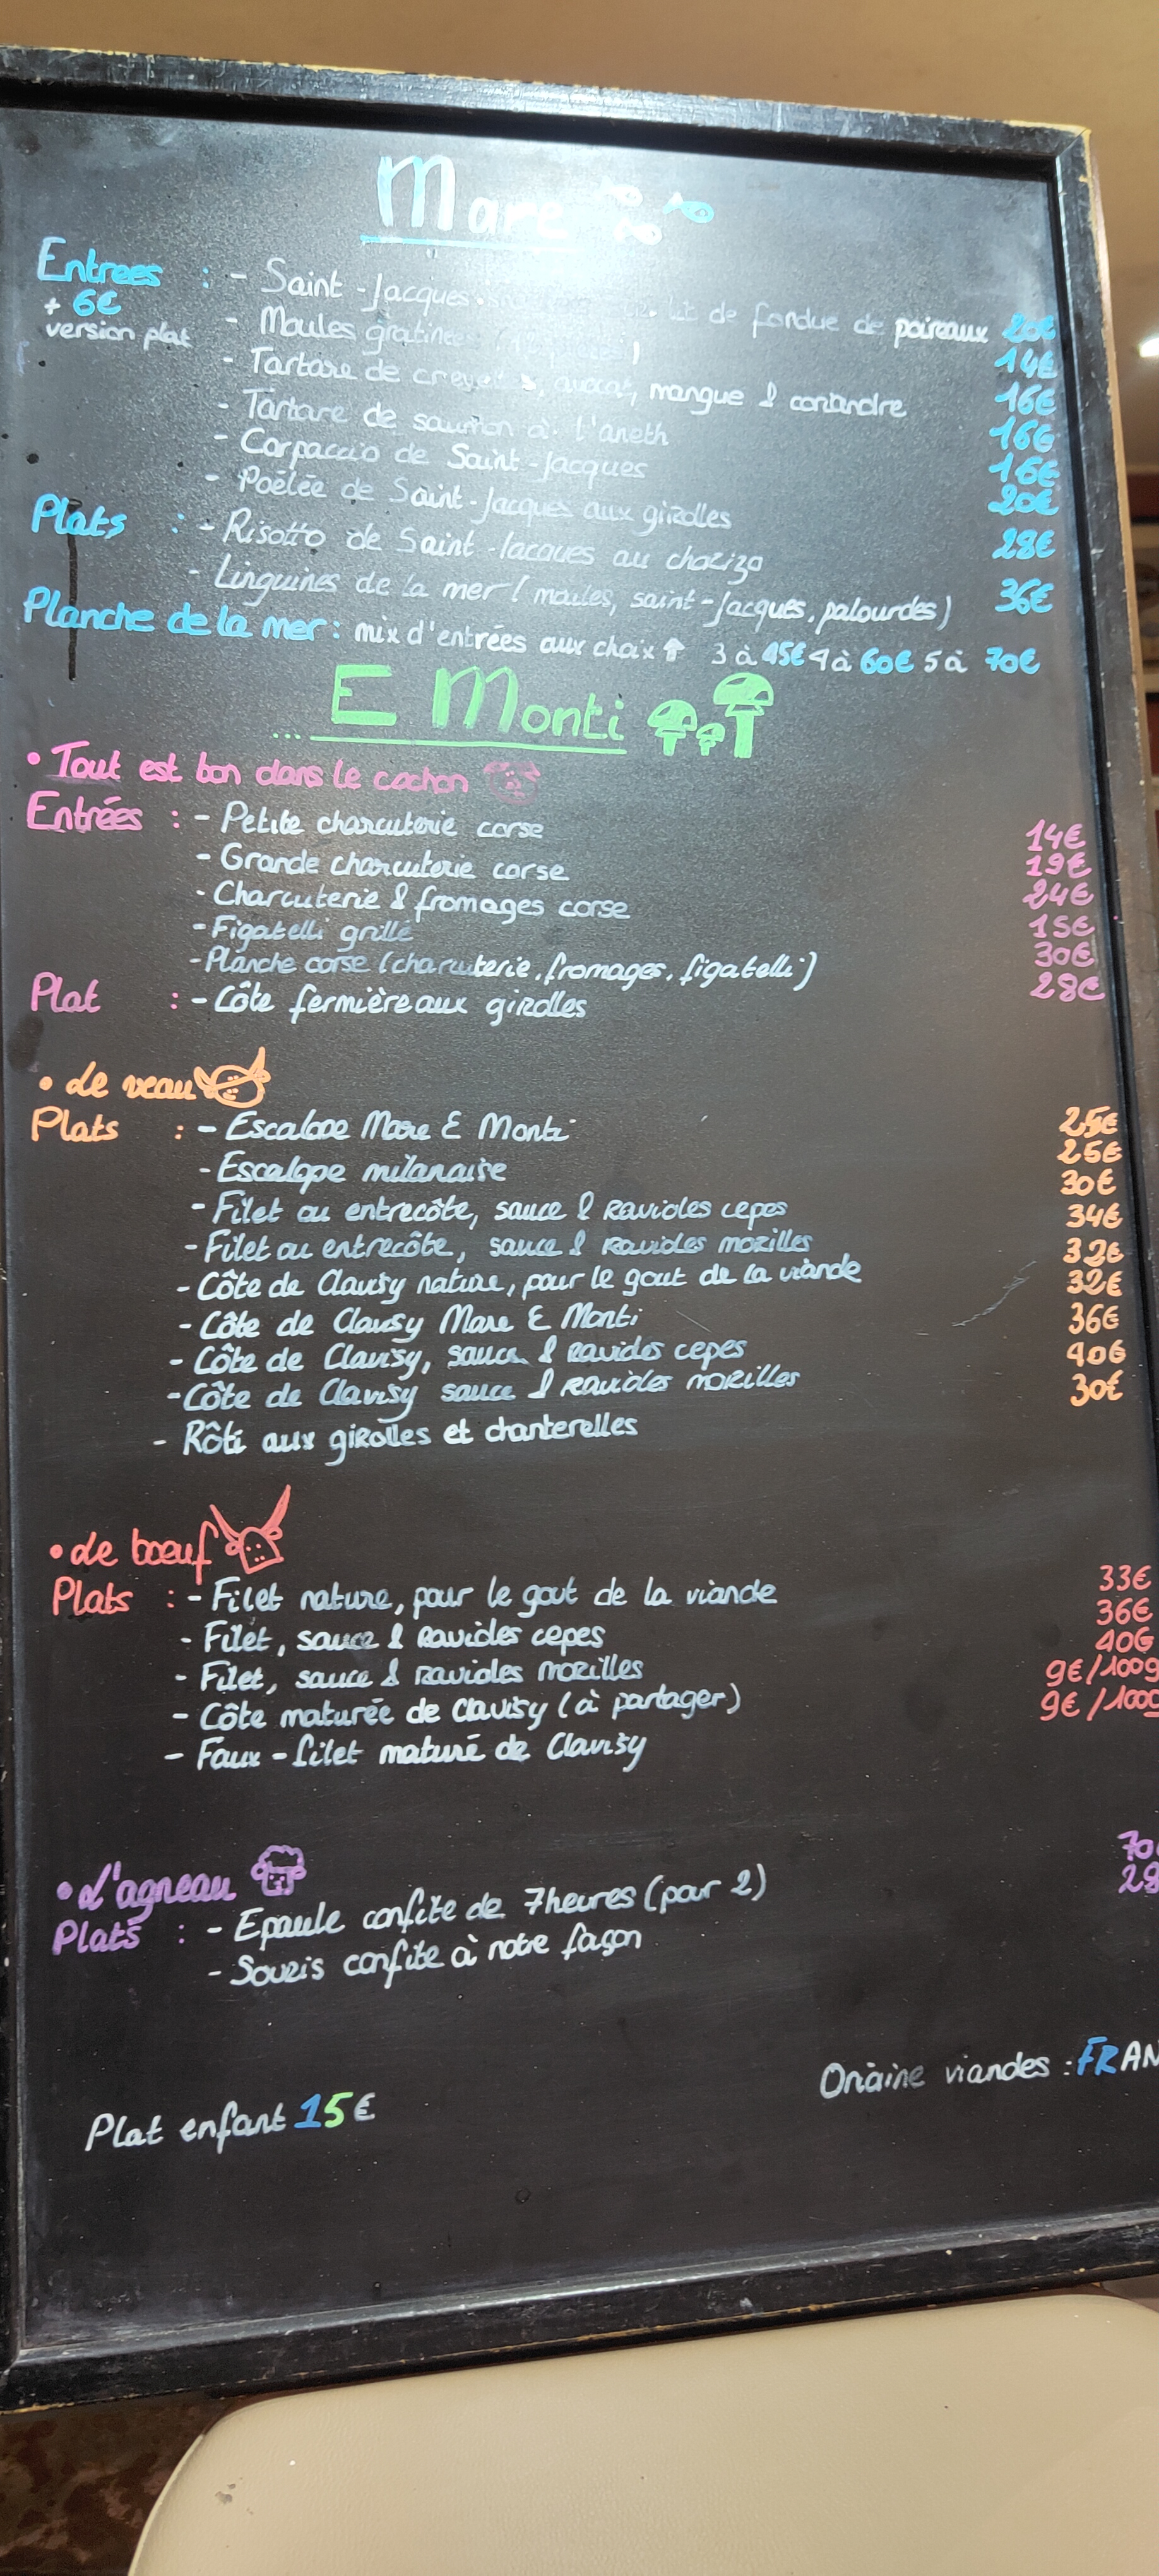 Mare
Entrees : - Saint-Jacques lit de fondue de poireaux 20€
+ 6€ - Moules gratinées 14€
version plat - Tartare de crevettes, avocat, mangue & coriandre 16€
- Tartare de saumon à l'aneth 16€
- Carpaccio de Saint-Jacques 16€
- Poêlée de Saint-Jacques aux girolles 20€
Plats : - Risotto de Saint-Jacques au chorizo 28€
- Linguines de la mer (moules, saint-Jacques, palourdes) 36€
Planche de la mer : mix d'entrées aux choix ↑ 3 à 45€ 4 à 60€ 5 à 70€
... E Monti
• Tout est bon dans le cochon
Entrées : - Petite charcuterie corse 14€
- Grande charcuterie corse 19€
- Charcuterie & fromages corse 24€
- Figatelli grillé 15€
- Planche corse (charcuterie, fromages, figatelli) 30€
Plat : - Côte fermière aux girolles 28€
• Le veau
Plats : - Escalope Mare E Monti 25€
- Escalope milanaise 25€
- Filet ou entrecôte, sauce & Ravioles cepes 30€
- Filet ou entrecôte, sauce & Ravioles morilles 34€
- Côte de Clavisy nature, pour le gout de la viande 32€
- Côte de Clavisy Mare E Monti 32€
- Côte de Clavisy, sauce & Ravioles cepes 36€
- Côte de Clavisy sauce & Ravioles morilles 40€
- Rôti aux girolles et chanterelles 30€
• de boeuf
Plats : - Filet nature, pour le gout de la viande 33€
- Filet, sauce & Ravioles cepes 36€
- Filet, sauce & Ravioles morilles 40€
- Côte maturée de Clavisy (à partager) 9€/100g
- Faux-filet maturé de Clavisy 9€/100g
• L'agneau
Plats : - Epaule confite de 7heures (pour 2) 70
- Souris confite à notre façon 28
Origine viandes : FRAN
Plat enfant 15€